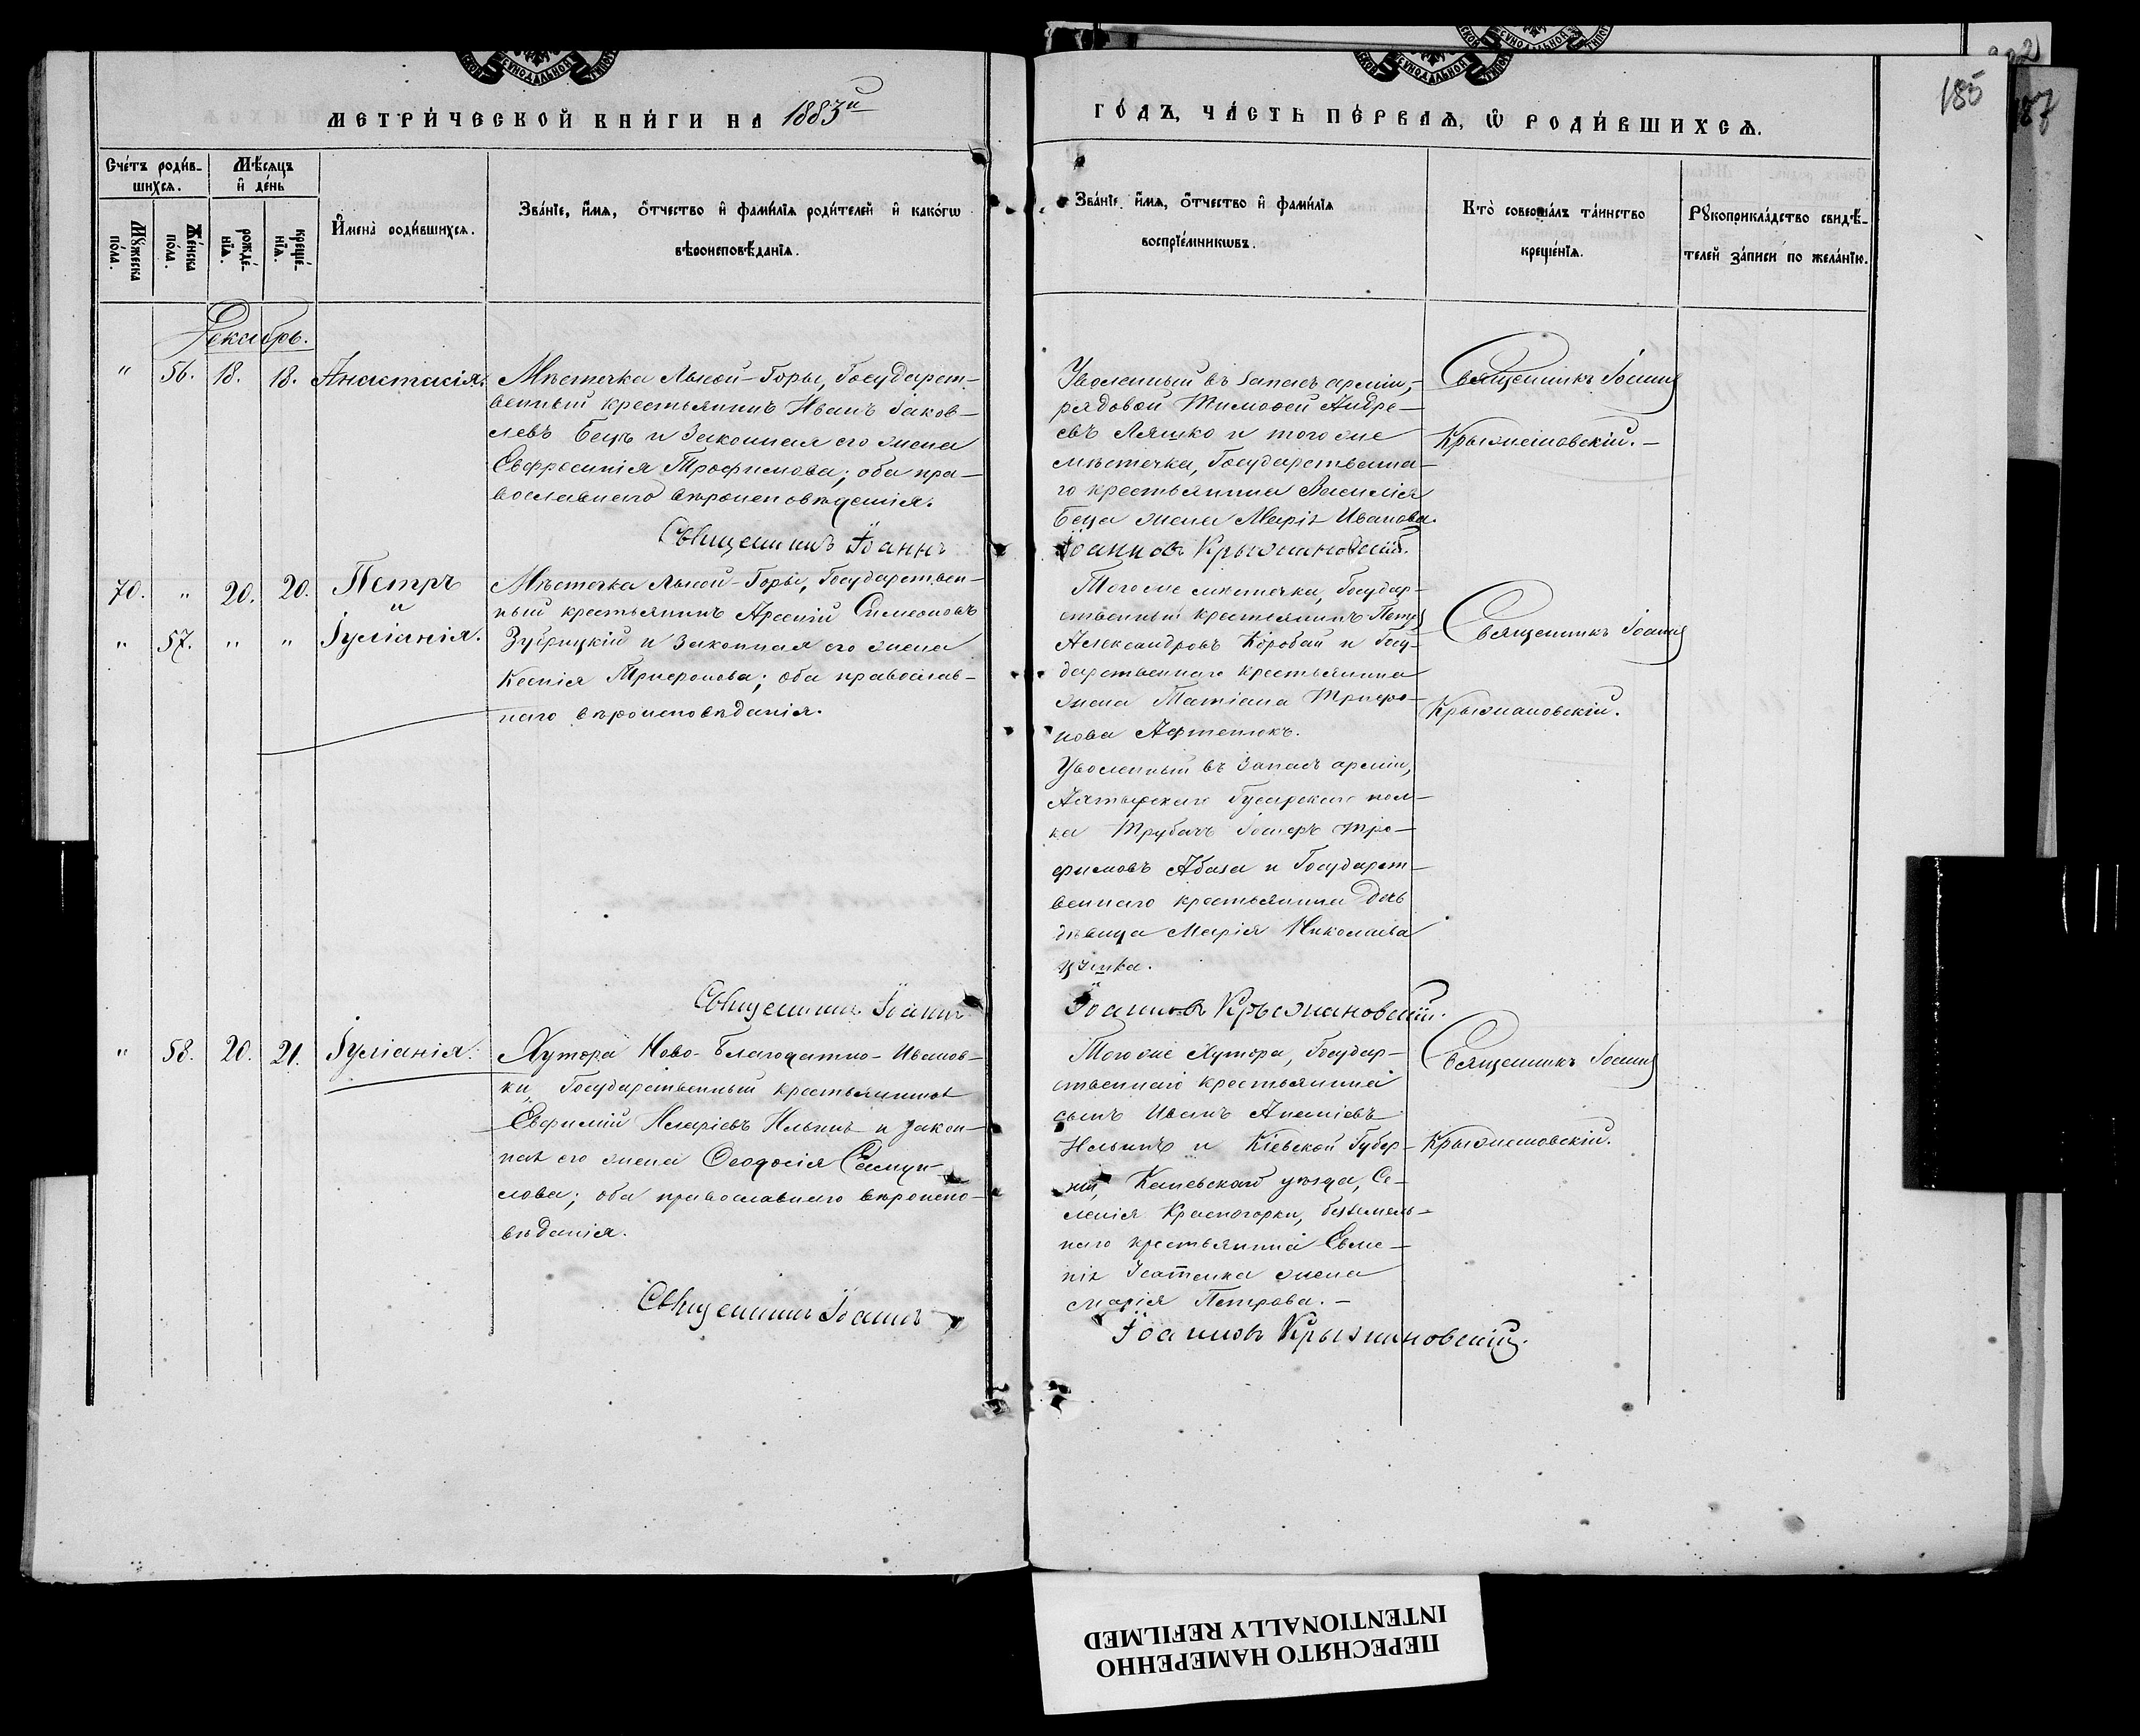 МЕТРИ́ЧЕСКОЙ КНИ́ГИ НА 1883й
ГО́ДЪ, ЧА́СТЬ ПЕ́РВАѦ, Ѡ҆ РОДИ́ВШИХСѦ.
185
187
Сче́тъ роди́в-
шихсѧ.
Мѣ́сѧцъ
и҆ де́нь
Мꙋ́жеска
по́ла.
Же́нска
по́ла.
рожде́-
нїѧ.
креще́-
нїѧ.
И҆мена̀ роди́вшихсѧ.
Зва́нїе, и҆́мѧ, ѻ҆́тчество и҆ фами́лїѧ роди́телей и҆ како́гѡ
вѣроисповѣ́данїѧ.
Зва́нїе, и҆́мѧ, ѻ҆́тчество и҆ фами́лїѧ
воспрїе́мникѡвъ.
Кто̀ соверша́лъ та́инство
креще́нїѧ.
Рꙋкоприкла́дство свидѣ́-
телей за́писи по жела́нїю.
Декабрь.
" 56. 18. 18. Анастасія.
Мѣстечка Лысой-Горы, Государст-
венный крестьянинъ Иванъ Іаков-
левъ Бецъ и законная его жена
Евфросинія Трофимова; оба пра-
вославнаго вѣроисповѣданія.
Священникъ Іоаннъ
Уволенный въ запасъ арміи,
рядовой Тимофей Андре-
евъ Ляшко и того же
мѣстечка, Государственна-
го крестьянина Василія
Беца жена Марія Иванова.
Іоанновъ Крыжановскій.
Священникъ Іоаннъ
Крыжановскій.
70. " 20. 20. Петръ
и
" 57. " " Іуліанія.
Мѣстечка Лысой-Горы, Государствен-
ный крестьянинъ Арсеній Симеоновъ
Зубрицкій и законная его жена
Ксенія Трифонова; оба православ-
наго вѣроисповѣданія.
Того же мѣстечка, Государ-
ственный крестьянинъ Петръ
Александровъ Коробай и Госу-
дарственнаго крестьянина
жена Татіана Трифо-
нова
Уволенный въ запасъ арміи,
Ахтырскаго Гусарскаго пол-
ка Трубачъ Іосифъ Тро-
фимовъ Абаза и Государст-
веннаго крестьянина дочь
дѣвица Марія Николаева
Священникъ Іоаннъ
Крыжановскій.
Священникъ Іоаннъ
Іоанновъ Крыжановскій.
" 58. 20. 21. Іуліанія.
Хутора Ново-Благодатно-Иванов-
ки, Государственный крестьянинъ
Евфимій Иларіевъ Ильинъ и закон-
ная его жена Ѳеодосія Самуи-
лова; оба православнаго вѣроиспо-
вѣданія.
Священникъ Іоаннъ
Того же Хутора, Государ-
ственнаго крестьянина
сынъ Иванъ
Ильинъ и Кіевской Губер-
ніи, Каневскаго уѣзда, Се-
ленія Красногорки, безземель-
наго крестьянина Евме-
нія жена
Марія Петрова.
Іоанновъ Крыжановскій.
Священникъ Іоаннъ
Крыжановскій.
ПЕРЕСНЯТО НАМЕРЕННО
INTENTIONALLY REFILMED